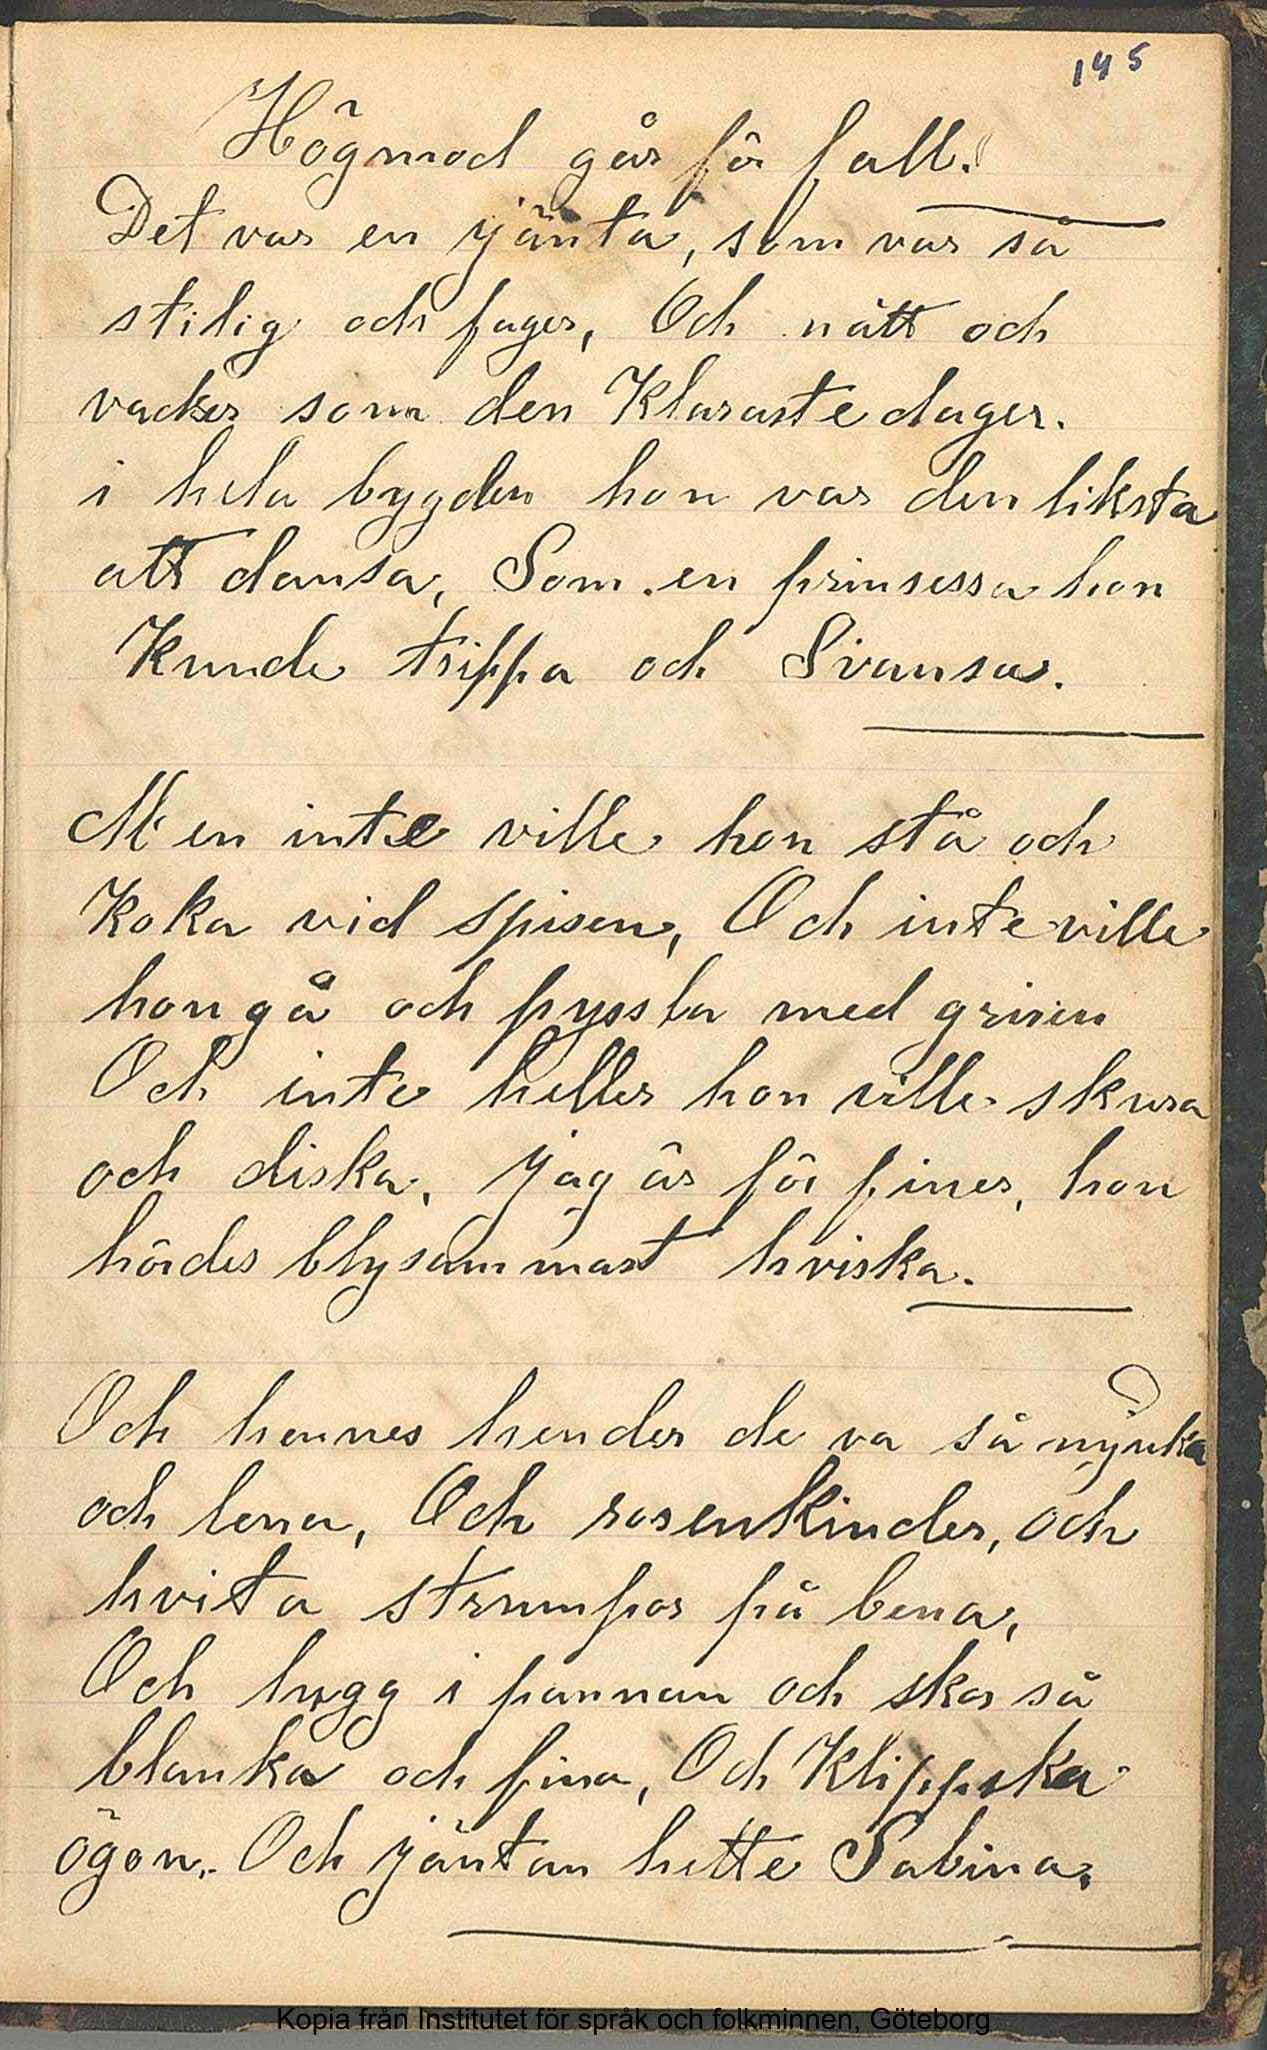 145
Högmod går för fall.
Det var en jänta, som var så
stilig och fager, Och nätt och
vacker som den Klaraste dager.
i hela bygden hon var den liksta
att dansa, Som en prinsessa hon
Kunde trippa och Svansa.
Men inte ville hon stå och
Koka vid spisen, Och inte ville
hon gå och pyssla med grisen
Och inte heller hon ville skura
och diska, Jag är för finer, hon
hördes blysammast hviska.
Och hennes hender de va så mjuka
och lena, Och rosenKinder, och
hvita strumpor på bena,
Och lugg i pannan och skor så
blanka och fina, Och Klippska
ögon. Och jäntan hette Sabina.
Kopia från Institutet för språk och folkminnen, Göteborg